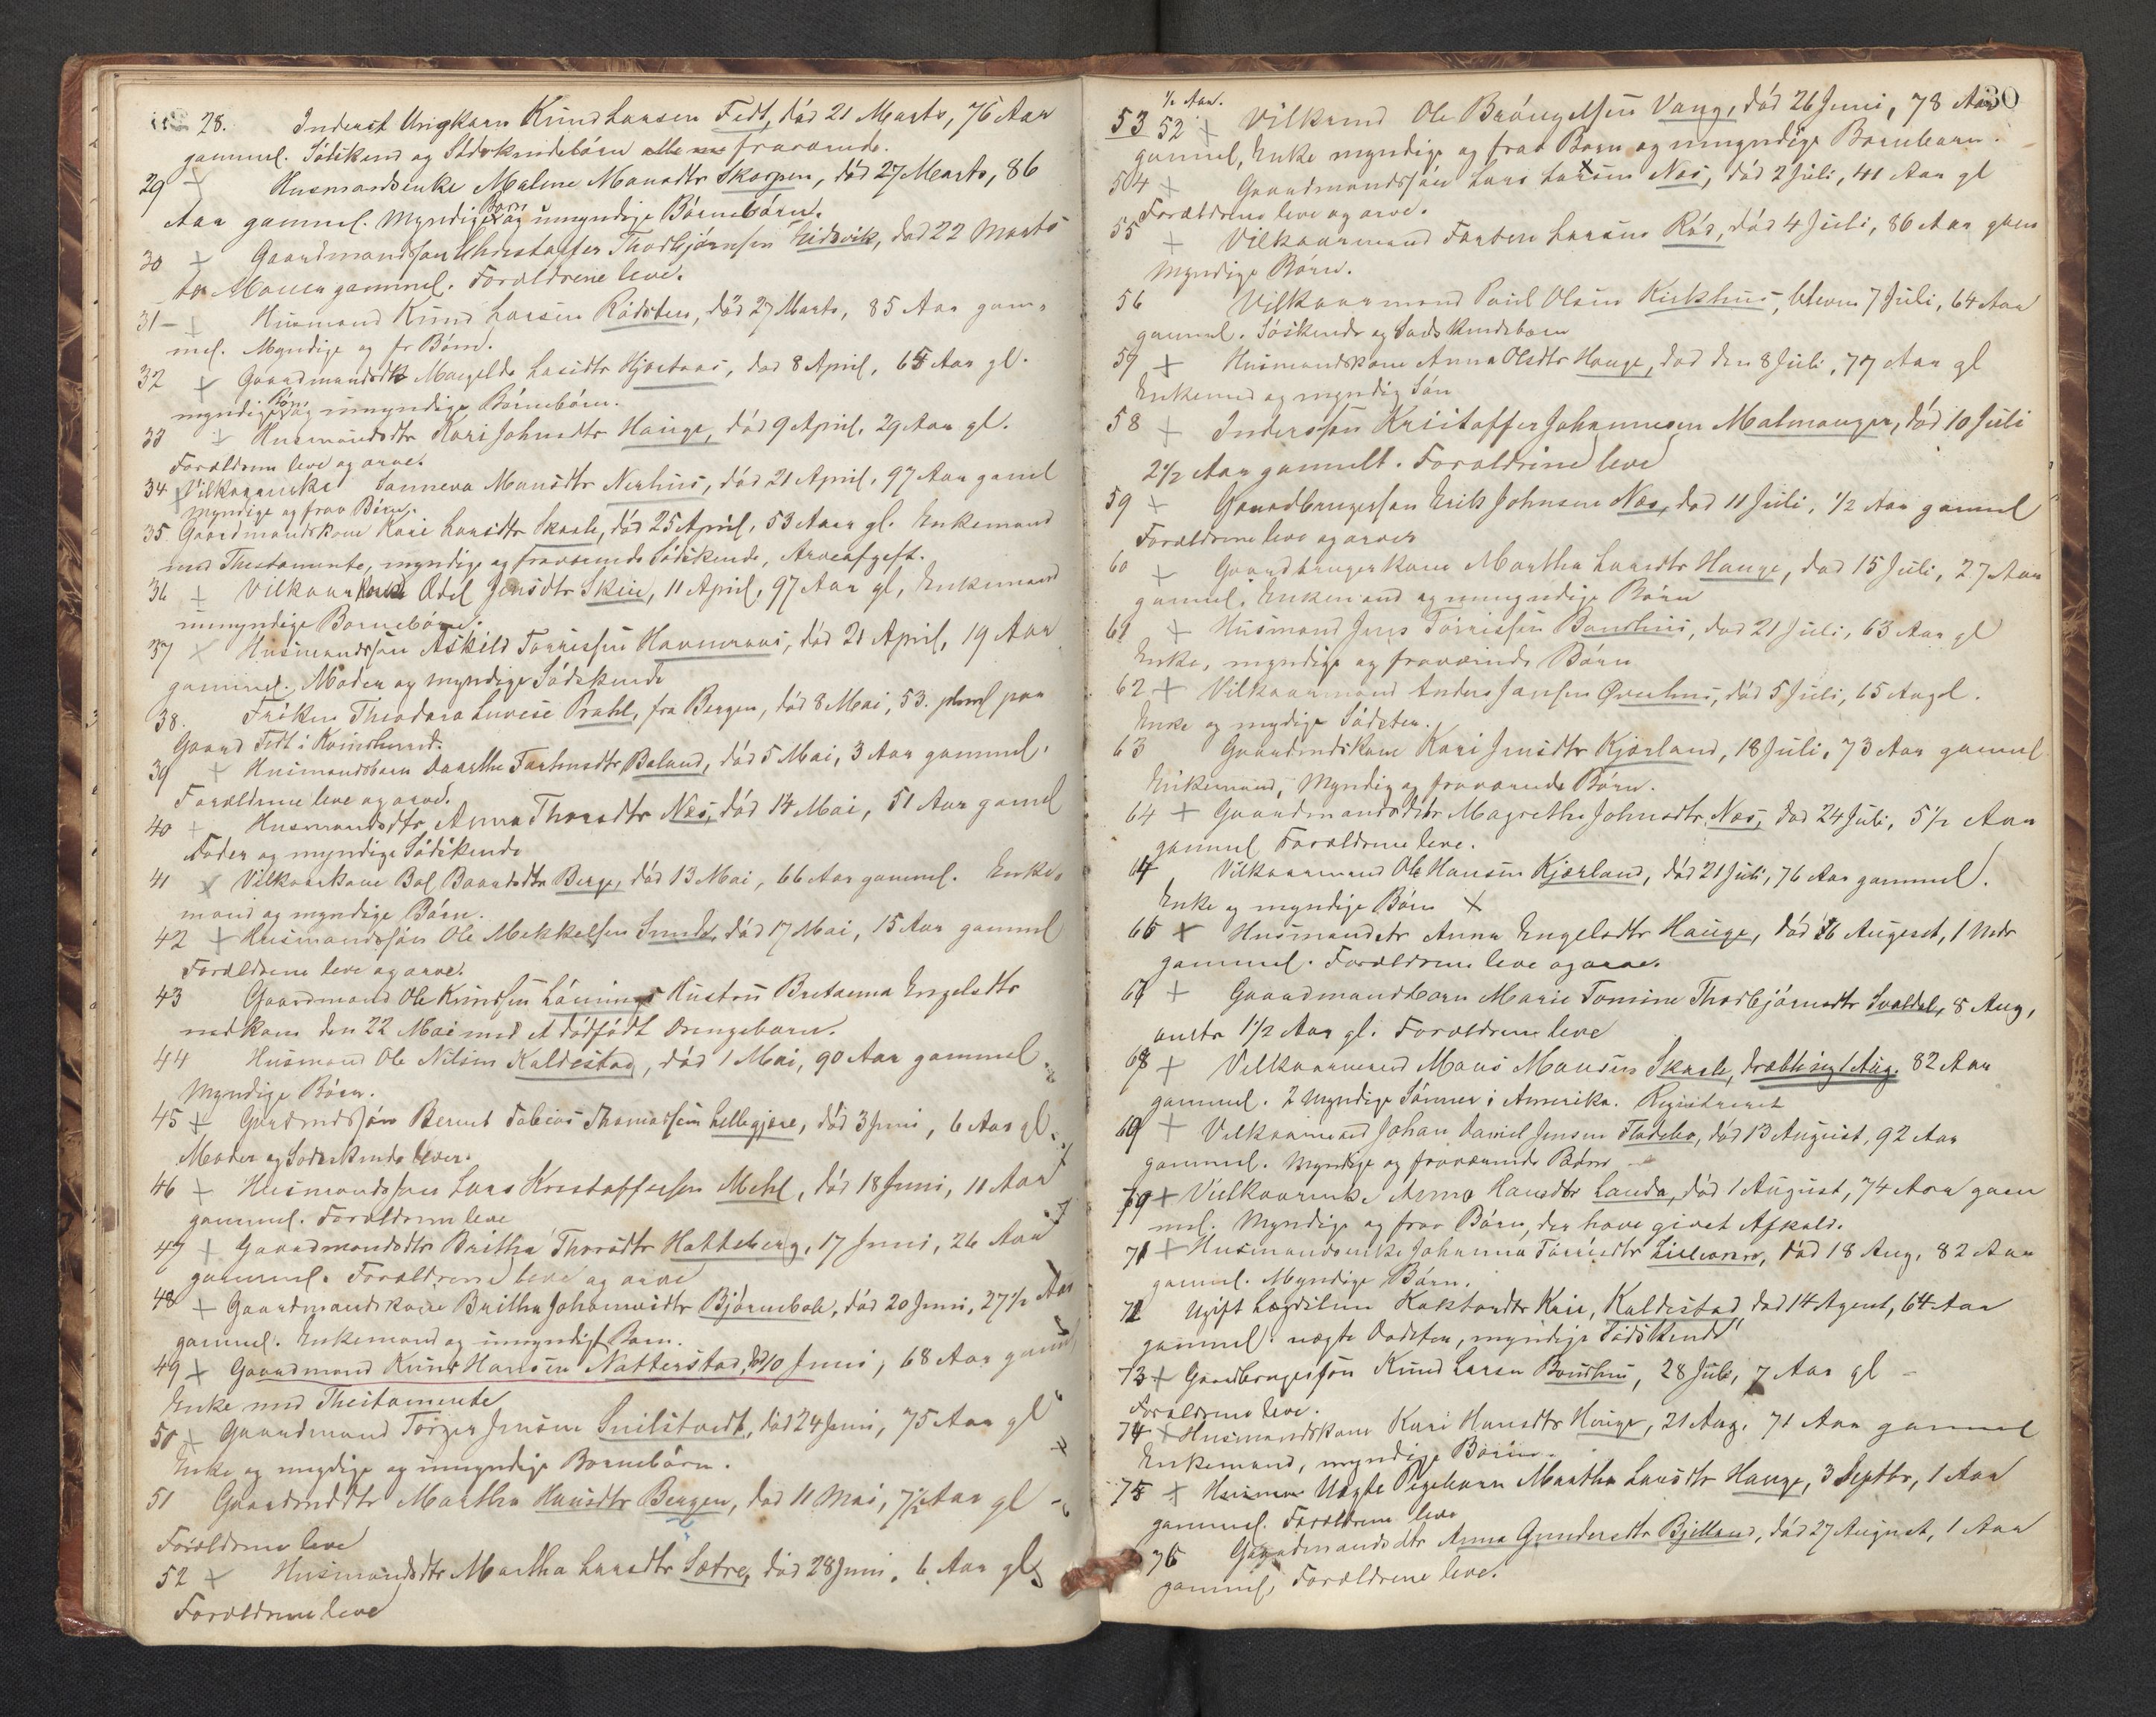 28. Inderst Ungkarn Knud Larsen Fedt, död 21 Marts, 76 Aar
gammel. Södskend og Södskendebörn alle fraværende.
29 Husmandsenke Malene Monsdtr Skorpen, död 27 Marts, 86
Aar gammel. Myndige Börn og umyndige Börnebörn.
30 Gaardmandssön Christoffer Thorbjörnsen Eidsvik, död 22 Marts
gammel. Forældrene leve.
31 - Husmand Knud Larsen Rödsten, död 27 Marts, 85 Aar gam-
mel. Myndige og fr Börn.
32 Gaardmandsdtr Margrethe Larsdtr Hjortaas, död 8 April, 65 Aar gl.
myndige Börn og umyndige Börnebörn.
33 Husmandsdtr Kari Johnsdtr Hauge, död 9 April, 29 Aar gl.
Forældrene leve og arve.
34 Vilkaarenke Sanneva Monsdtr Nerhus, död 21 April, 97 Aar gamel
Myndige og frav Börn.
35 Gaardmandskone Kari Larsdtr Skaale, död 25 April, 53 Aar gl. Enkemand
med Thestamente, myndige og fraværende Södskende, Arveafgift.
36 Vilkaarkone Odel Jensdtr Skeie, 11 April, 97 Aar gl, Enkemand
umyndige Bornebörn.
37 Husmandssön Askild Torrissen Havneraas, död 21 April, 19 Aar
gammel. Moder og myndige Södskende
38. Fröken Theodora Lovise Prahl, fra Bergen, död 8 Mai, 53. paa
Gaard Fedt i Kvindherred.
39 Husmandsbarn Daarthe Torbersdtr Baland, död 5 Mai, 3 Aar gammel.
Forældrene leve og arve.
40 Husmandsdtr Anna Thorsdtr Næs, död 14 Mai, 51 Aar gamel
Fader og myndige Södskende
41 Vilkaarkone Bol Baardsdtr Berge, död 13 Mai, 66 Aar gammel. Enke-
mand og myndige Börn.
42 Husmandssön Ole Mekkelsen Sunde, död 17 Mai, 15 Aar gammel
Forældrene leve og arve.
43 Gaardmand Ole Knudsen Lönnings Hustru Bretanna Engelsdtr
nedkom den 22 Mai med et dödfödt Drengebarn.
44 Husmand Ole Nilsen Kaldestad, död 1 Mai, 90 Aar gammel.
Myndige Börn.
45 Gaardmdssön Bernt Tobias Thomassen Lillegjære, död 3 Juni, 6 Aar gl.
Moder og Södskende lever.
46 Husmandssön Lars Kristoffersen Mehl, död 18 Juni, 11 Aar
gammel. Forældrene leve
47 Gaardmandsdtr Britha Thorsdtr Hatteberg, 17 Juni, 26 Aar
gammel. Forældrene leve og arve
48 Gaardmandskone Britha Johannesdtr Björnebole, död 20 Juni, 27 1/2 Aar
gammel. Enkemand og umyndigt Barn.
49 Gaardmand Knud Hansen Natterstad, död 10 Juni, 68 Aar gammel
Enke med Thestamente
50 Gaardmand Torger Jensen Snilstvedt, död 24 Juni, 75 Aar gl
Enke og mydige og umyndige Bornebörn.
51 Gaardmddtr Martha Hansdtr Bergen, död 11 Mai, 7 1/2 Aar gl
Forældrene leve
52 Husmandsdtr Martha Larsdtr Sætre, död 28 Juni, 6 Aar gl
Forældrene leve
30
1/2 Aar.
53 52 Vilkmnd Ole Bryngelsen Vang, död 26 Juni, 78 Aar
gammel, Enke myndige og frav Born og umyndige Bornebarn.
54 Gaardmandssön Lars Larsen Næs, död 2 Juli, 41 Aar gl
Forældrene leve og arve.
55 Vilkaarmand Torsten Larsen Röd, död 4 Juli, 86 Aar gam
Myndige Börn.
56 Vilkaarmand Poul Olsen Kirkhus, 7 Juli, 64 Aar
gammel. Söskende og Södskendebörn
57 Husmandskone Anna Olsdtr Hauge, död den 8 Juli, 77 Aar gl
Enkemnd og myndig Sön
58 Inderssön Kristoffer Johannesen Malmanger, död 10 Juli
2 1/2 Aar gammelt. Forældrene leve
59 Gaardbrugersön Erik Johnsen Næs, död 11 Juli, 1/2 Aar gammel
Forældrene leve og arver
60 Gaardbrugerkone Martha Larsdtr Hauge, död 15 Juli, 27 Aar
gammel. Enkemand og umyndige Börn
61 Husmand Jens Torrissen Bondhus, död 21 Juli, 63 Aar gl
Enke, myndige og fraværende Börn
62 Vilkaarmand Anders Jansen Øverhus, död 5 Juli, 65 Aar gl.
Enke og mydige Södsken.
63 Gaardmdskone Kari Jensdtr Kjærland, 18 Juli, 73 Aar gammel
Enkemand, Myndig og fraværende Börn.
64 Gaardmandsdtr Magrethe Johnsdtr Næs, död 24 Juli, 5 1/2 Aar
gammel Forældrene leve.
Vilkaarmand Ole Hansen Kjærland, död 21 Juli, 76 Aar gammel.
Enke og myndige Börn
Husmandsdtr Anna Engelsdtr Hauge, död 26 August, 1 Mdr
gammel. Forældrene leve og arve.
Gaardmandbarn Marie Tomine Thorbjörnsdtr Svaldal, 8 Aug,
1 1/2 Aar gl. Forældrene leve
68 Vilkaarmand Mons Monsen Skaale, dræbte sig 1 Aug. 82 Aar
gammel. 2 Myndige Sönner i Amerika. Registreret
69 Vilkaarmand Johan Daniel Jensen Flatebo, död 13 August, 92 Aar
gammel. Myndige og fraværende Börn
Vilkaarenke Anna Hansdtr Landa, död 1 August, 74 Aar gam
mel. Myndige og frav Börn, der have givet Afkald.
71 Husmandsenke Johanna Torrisdtr Lilleøren, död 18 Aug, 82 Aar
gammel. Myndige Börn.
72 Ugift Lægdslem Kari, Kaldestad, död 14 Agust, 64 Aar
gammel. Södskende
73 Gaardbrugersön Knud Larsen Bondhus, 28 Juli, 7 Aar gl -
Forældrene leve.
74 Husmandskone Kari Hansdtr Hauge, 21 Aug. 71 Aar gammel
Enkemand, myndige Börn.
75 Uægte Pigebarn Martha Larsdtr Hauge, 3 Septbr, 1 Aar
gammel. Forældrene leve
76 Gaardmandsdtr Anna Gundersdtr Bjelland, död 27 August, 1 Aar
gammel, Forældrene leve.